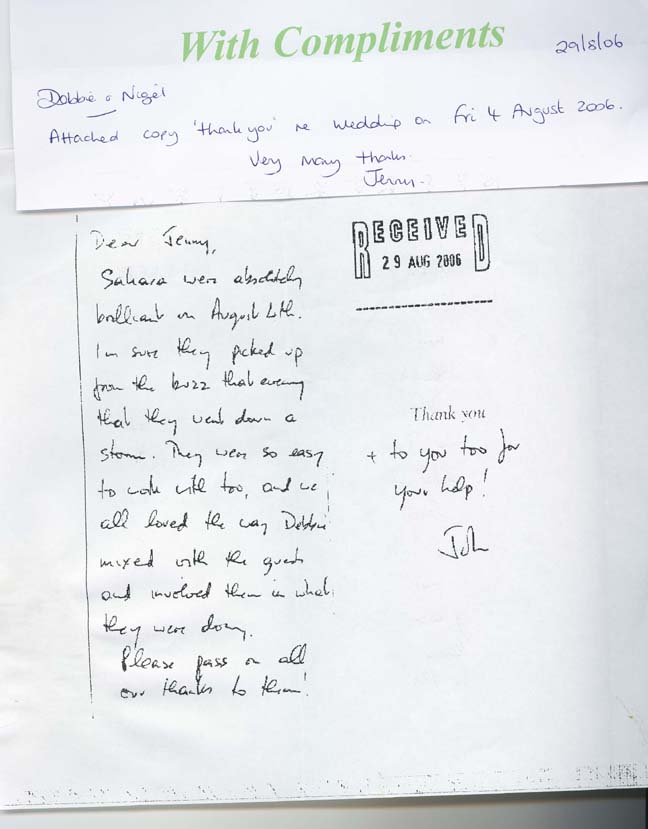 With Compliments
29/8/06
Debbie & Nigel
Attached copy 'thank you' re wedding on Fri 4 August 2006.
Very many thanks.
Jenny.
Dear Jenny,
Sahara were absolutely
brilliant on August 4th.
I'm sure they picked up
from the buzz that evening
that they went down a
storm. They were so easy
to work with too, and we
all loved the way Debbie
mixed with the guests
and involved them in what
they were doing.
Please pass on all
our thanks to them!
RECEIVED
29 AUG 2006
Thank you
+ to you too for
your help!
John